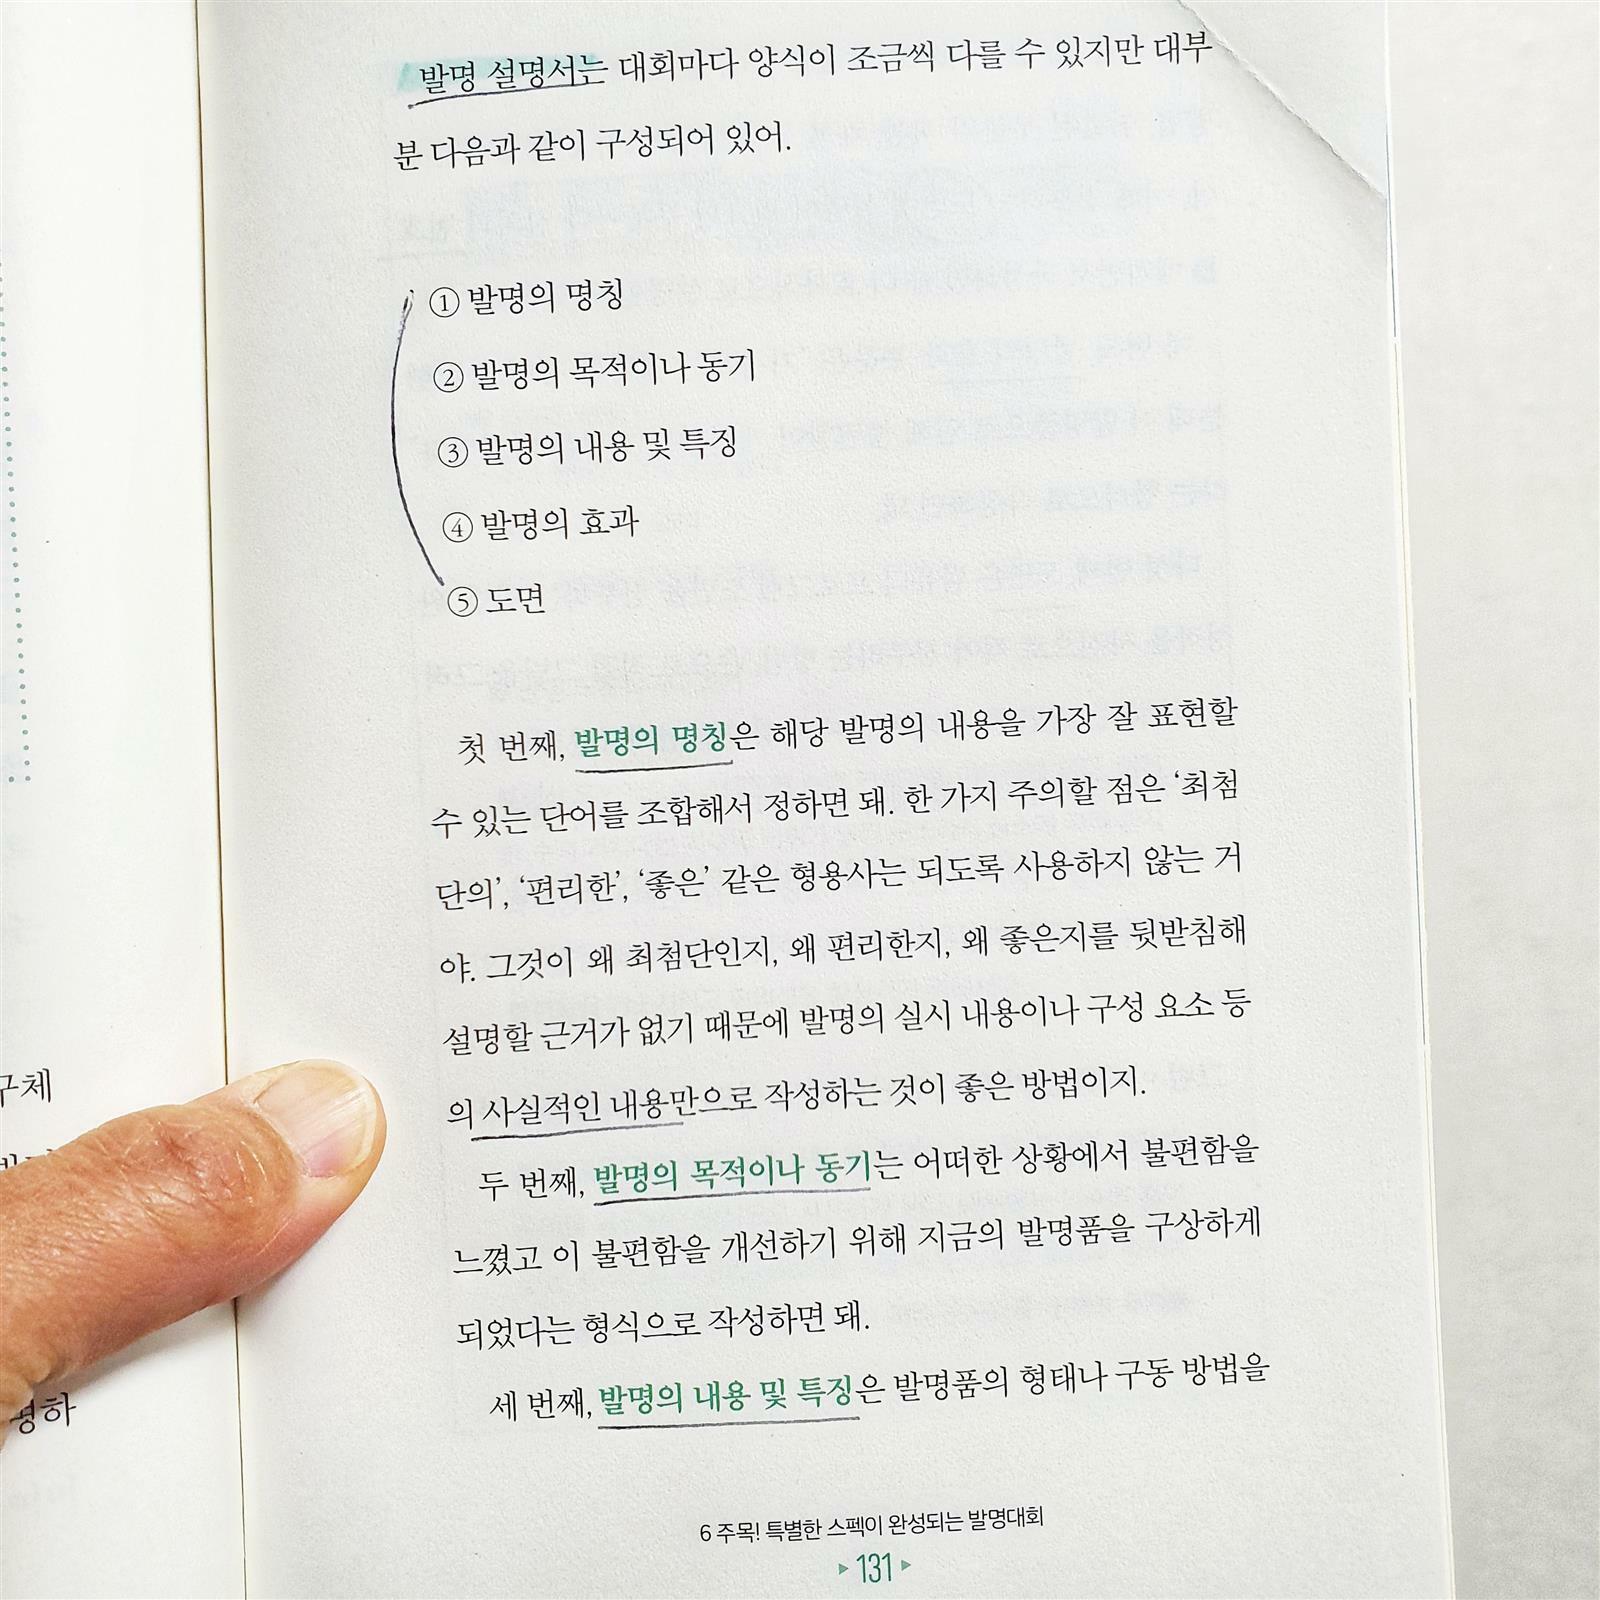 발명 설명서는 대회마다 양식이 조금씩 다를 수 있지만 대부
분 다음과 같이 구성되어 있어.
① 발명의 명칭
② 발명의 목적이나 동기
③ 발명의 내용 및 특징
④ 발명의 효과
⑤ 도면
첫 번째, 발명의 명칭은 해당 발명의 내용을 가장 잘 표현할
수 있는 단어를 조합해서 정하면 돼. 한 가지 주의할 점은 ‘최첨
단의’, ‘편리한’, ‘좋은’ 같은 형용사는 되도록 사용하지 않는 거
야. 그것이 왜 최첨단인지, 왜 편리한지, 왜 좋은지를 뒷받침해
설명할 근거가 없기 때문에 발명의 실시 내용이나 구성 요소 등
의 사실적인 내용만으로 작성하는 것이 좋은 방법이지.
두 번째, 발명의 목적이나 동기는 어떠한 상황에서 불편함을
느꼈고 이 불편함을 개선하기 위해 지금의 발명품을 구상하게
되었다는 형식으로 작성하면 돼.
세 번째, 발명의 내용 및 특징은 발명품의 형태나 구동 방법을
6 주목! 특별한 스펙이 완성되는 발명대회
131
구체